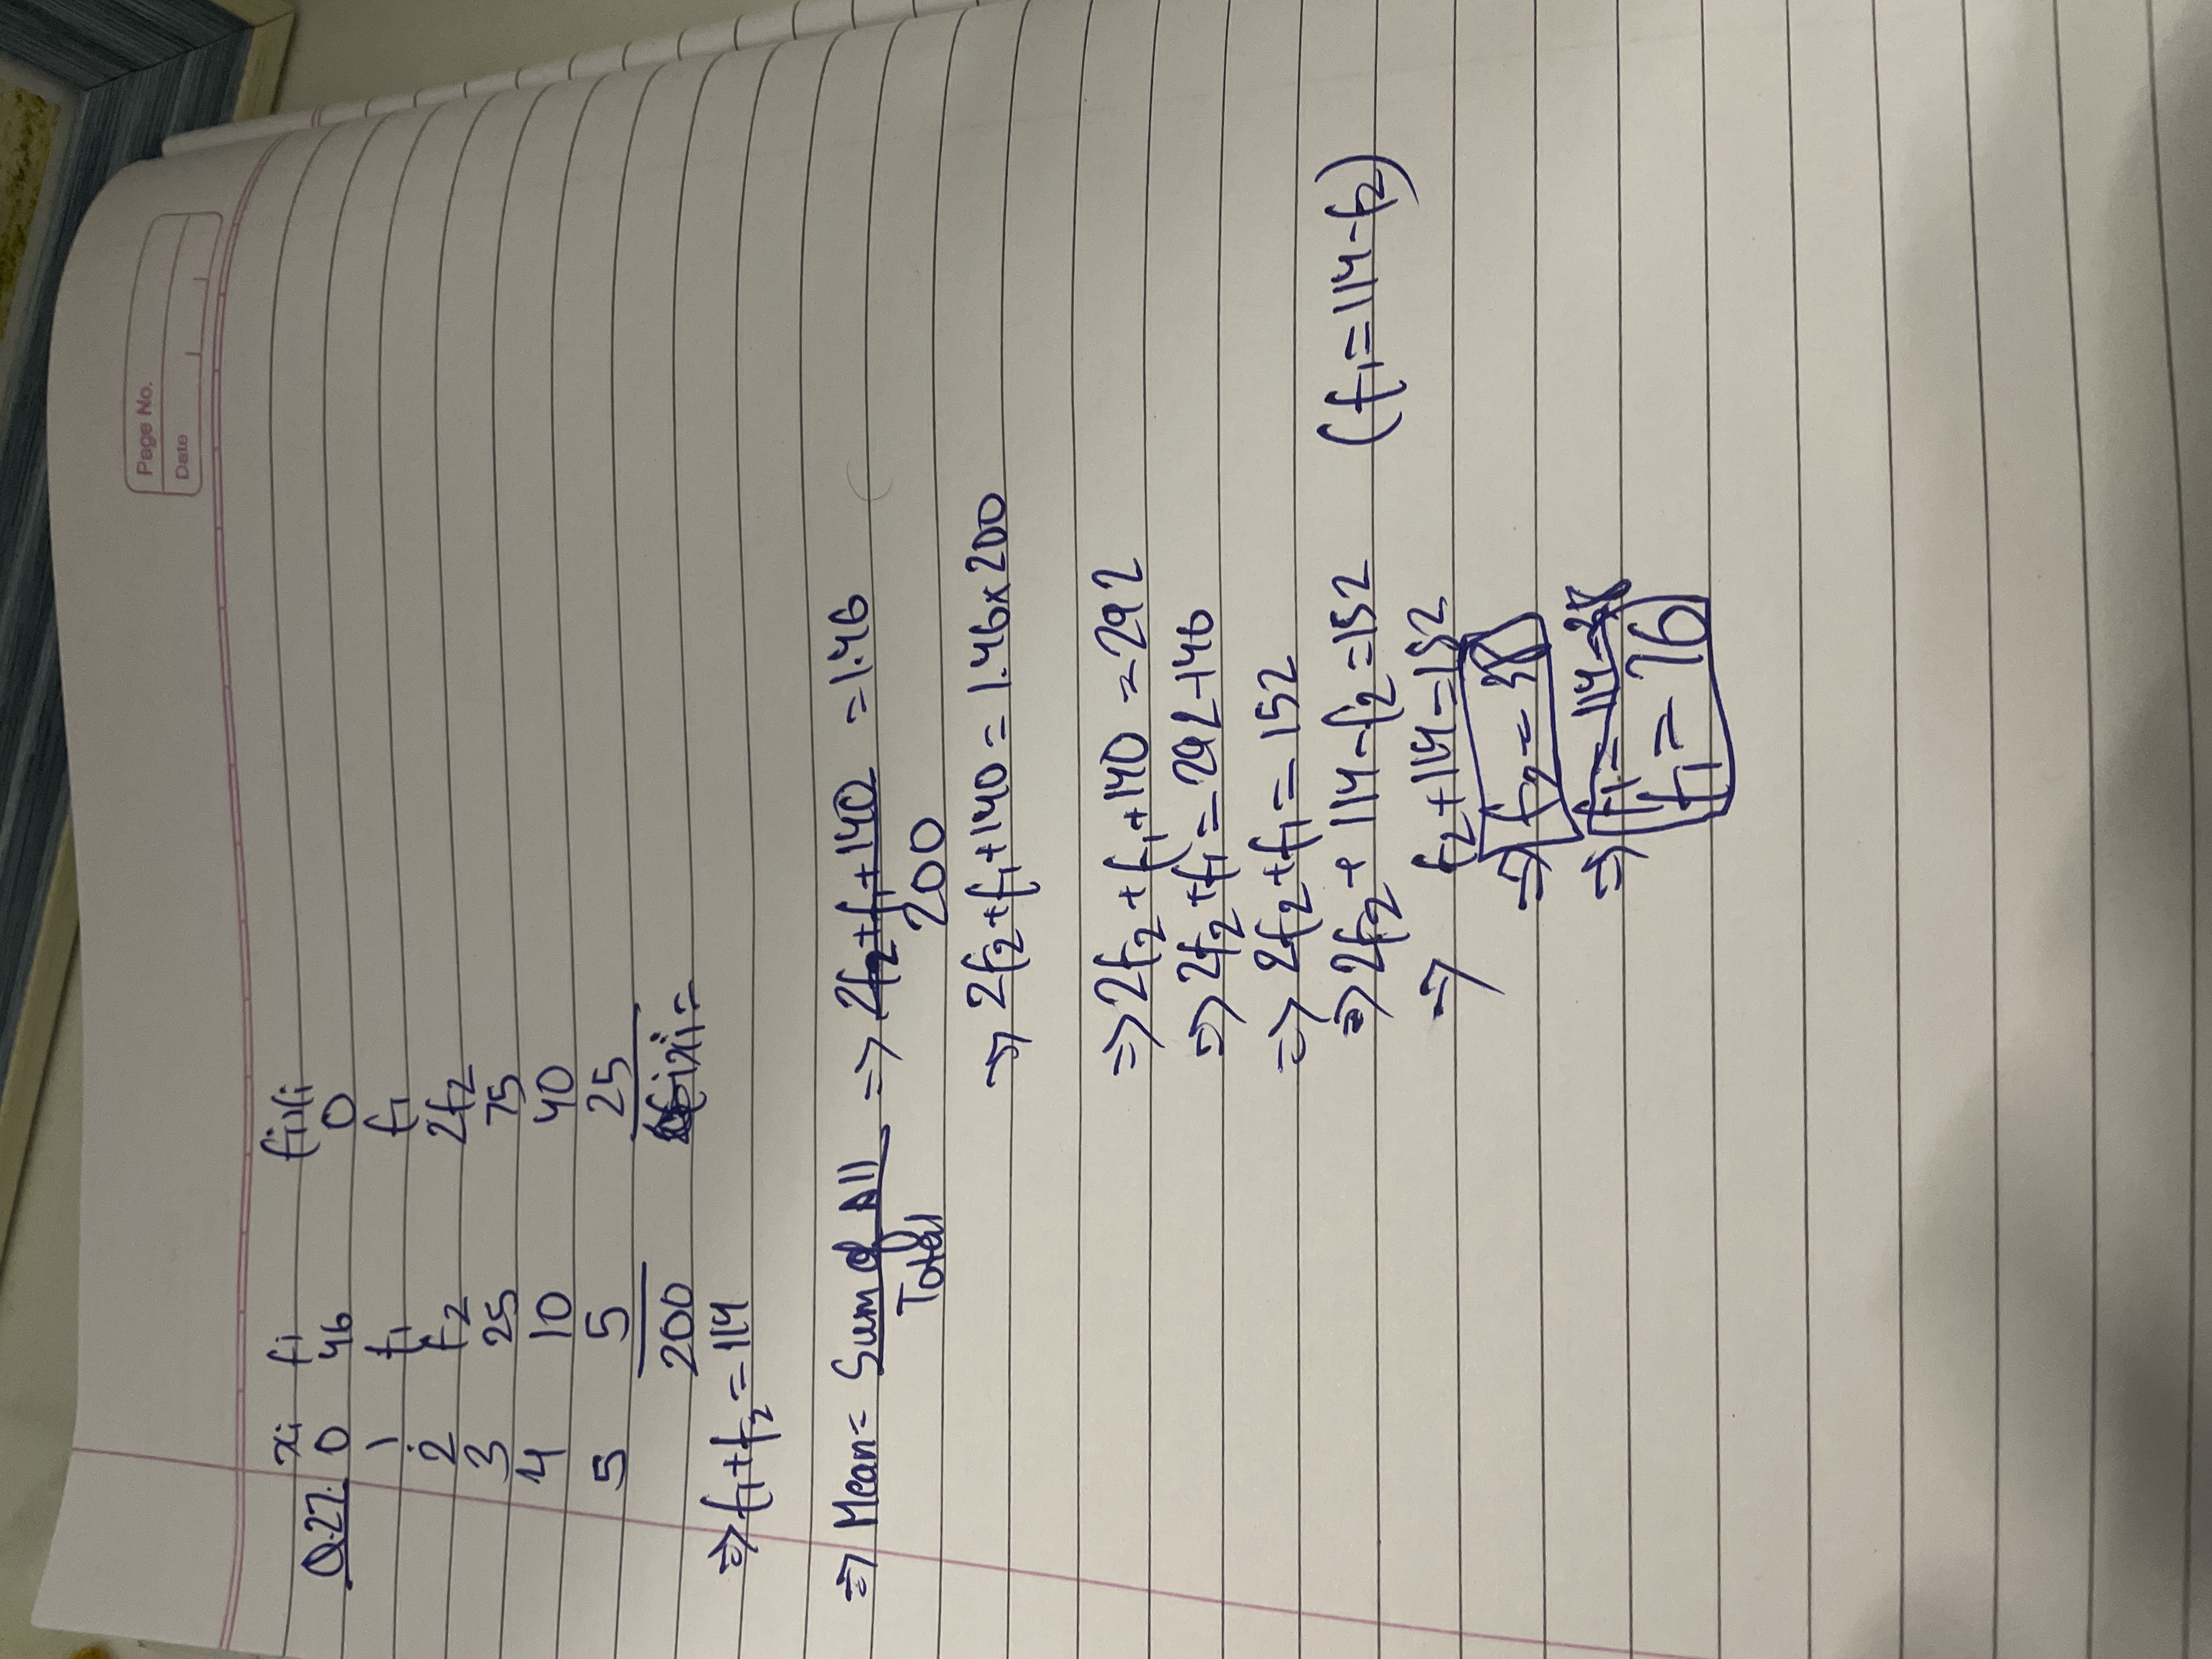 Page No.
Date
xi fi fixi
Q.27. 0 46 0
1 f1 f1
2 f2 2f2
3 25 75
4 10 40
5 5 25
200 fixi =
⇒ f1 + f2 = 114
⇒ Mean = Sum of All / Total ⇒ 2f2 + f1 + 140 / 200 = 1.46
⇒ 2f2 + f1 + 140 = 1.46 × 200
⇒ 2f2 + f1 + 140 = 292
⇒ 2f2 + f1 = 292 - 140
⇒ 2f2 + f1 = 152
⇒ 2f2 + 114 - f2 = 152 (f1 = 114 - f2)
⇒ f2 + 114 = 152
⇒ f2 = 38
⇒ f1 = 114 -
f1 = 76